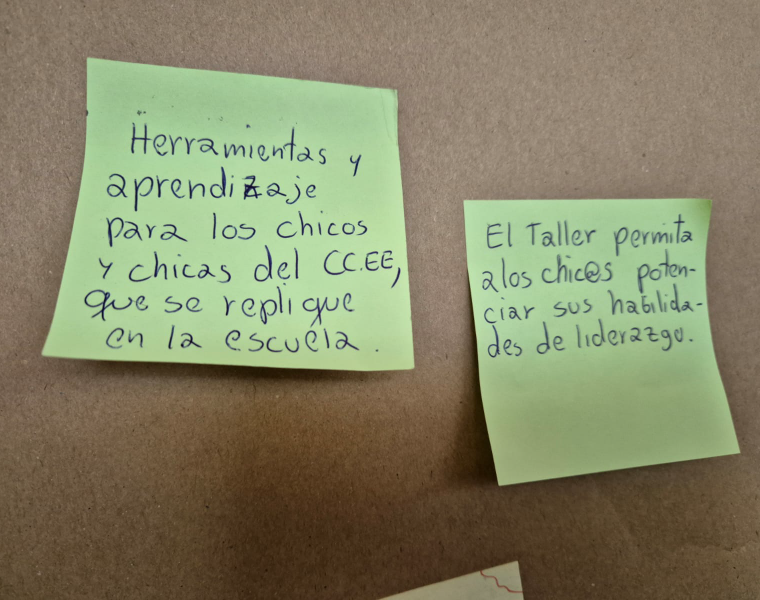 Herramientas y
aprendizaje
para los chicos
y chicas del CC.EE,
que se replique
en la escuela.
El Taller permita
a los chic@s poten-
ciar sus habilida-
des de liderazgo.